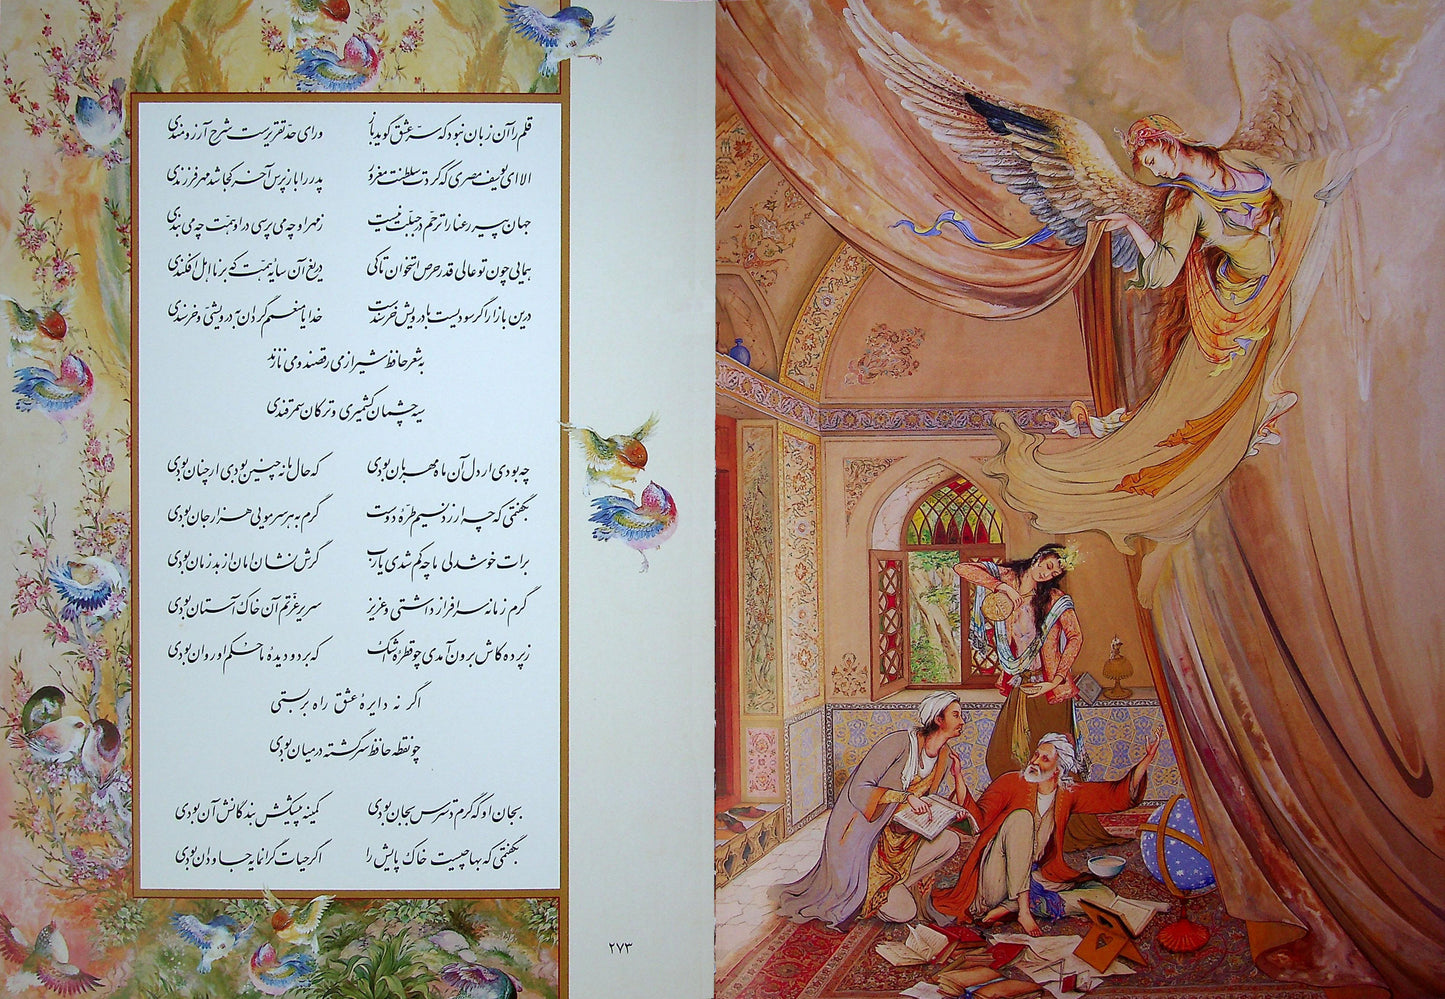 قلم را آن زبان نبود که سرّ عشق گوید باز ورای حدّ تقریرست شرح آرزومندی
الا ای یوسف مصری که کردت سلطنت مغرور پدر را باز پرس آخر کجا شد مهر فرزندی
جهان پیر رعنا را ترحّم در جبلّت نیست ز مهر او چه می پرسی در او همّت چه می بندی
همایی چون تو عالی قدر حرص استخوان تا کی دریغ آن سایهٔ همّت که بر نااهل افکندی
درین بازار اگر سودیست با درویش خرسندست خدایا منعمم گردان به درویشی و خرسندی
به شعر حافظ شیراز می رقصند و می نازند
سیه چشمان کشمیری و ترکان سمرقندی
چه بودی ار دل آن ماه مهربان بودی که حال ما نه چنین بودی ار چنان بودی
بگفتمی که چه ارزد نسیم طرّهٔ دوست گرم به هر سر مویی هزار جان بودی
برات خوشدلی ما چه کم شدی یارب گرش نشان امان از بد زمان بودی
گرم زمانه سرافراز داشتی و عزیز سریر عزّتم آن خاک آستان بودی
ز پرده کاش برون آمدی چو قطرهٔ اشک که بر دو دیدهٔ ما حکم او روان بودی
اگر نه دایرهٔ عشق راه بربستی
چو نقطه حافظ سرگشته در میان بودی
بجان او که گرم دسترس بجان بودی کمینه پیشکش بندگانش آن بودی
بگفتمی که بها چیست خاک پایش را اگر حیات گرانمایه جاودان بودی
۲۷۳